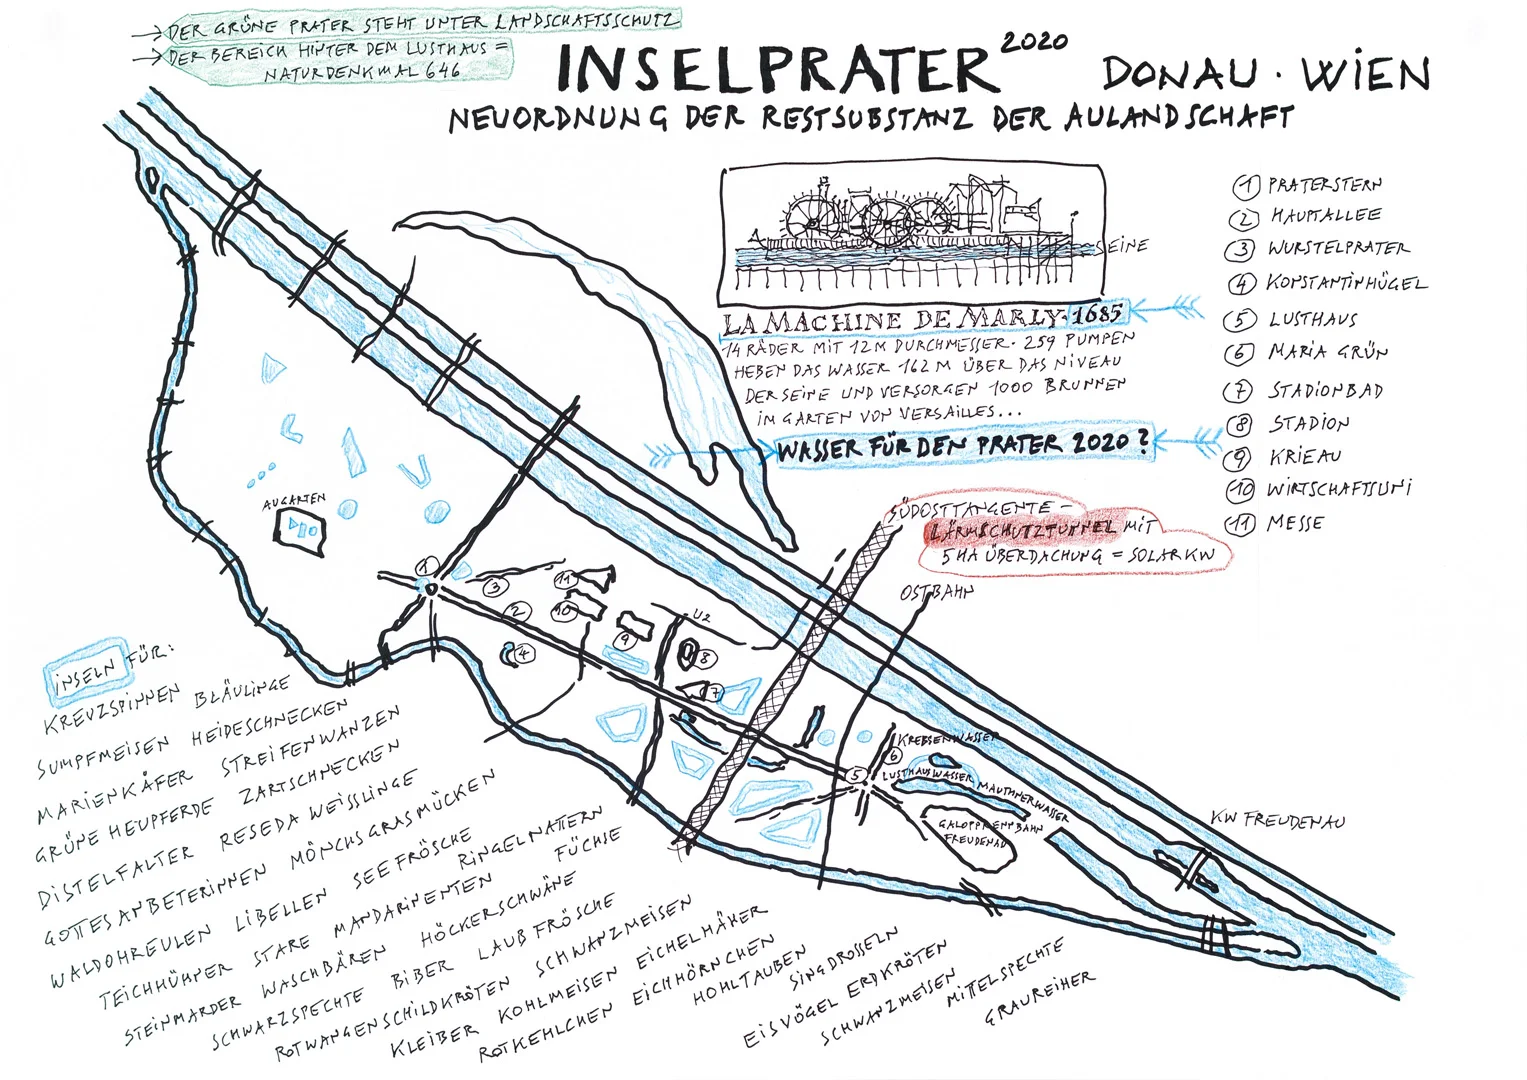 → DER GRÜNE PRATER STEHT UNTER LANDSCHAFTSSCHUTZ
→ DER BEREICH HINTER DEM LUSTHAUS =
NATURDENKMAL 646
INSELPRATER 2020 DONAU · WIEN
NEUORDNUNG DER RESTSUBSTANZ DER AULANDSCHAFT
SEINE
LA MACHINE DE MARLY · 1685
14 RÄDER MIT 12 M DURCHMESSER · 259 PUMPEN
HEBEN DAS WASSER 162 M ÜBER DAS NIVEAU
DER SEINE UND VERSORGEN 1000 BRUNNEN
IM GARTEN VON VERSAILLES...
WASSER FÜR DEN PRATER 2020?
1 PRATERSTERN
2 HAUPTALLEE
3 WURSTELPRATER
4 KONSTANTINHÜGEL
5 LUSTHAUS
6 MARIA GRÜN
7 STADIONBAD
8 STADION
9 KRIEAU
10 WIRTSCHAFTSUNI
11 MESSE
SÜDOSTTANGENTE -
LÄRMSCHUTZTUNNEL MIT
5 HA ÜBERDACHUNG = SOLARKW
OSTBAHN
AUGARTEN
1
3
11
2
10
U2
9
4
8
7
5
6
KREBSENWASSER
LUSTHAUSWASSER
MAUTHNERWASSER
GALOPPRENNBAHN
FREUDENAU
KW FREUDENAU
INSELN FÜR:
KREUZSPINNEN BLÄULINGE
SUMPFMEISEN HEIDESCHNECKEN
MARIENKÄFER STREIFENWANZEN
GRÜNE HEUPFERDE ZARTSCHNECKEN
DISTELFALTER RESEDA WEISSLINGE
GOTTESANBETERINNEN MÖNCHSGRASMÜCKEN
WALDOHREULEN LIBELLEN SEEFRÖSCHE RINGELNATTERN
TEICHHÜHNER STARE MANDARINENTEN FÜCHSE
STEINMARDER WASCHBÄREN HÖCKERSCHWÄNE
SCHWARZSPECHTE BIBER LAUBFRÖSCHE
ROTWANGENSCHILDKRÖTEN SCHWANZMEISEN
KLEIBER KOHLMEISEN EICHELHÄHER
ROTKEHLCHEN EICHHÖRNCHEN
HOHLTAUBEN
SINGDROSSELN
EISVÖGEL ERDKRÖTEN
SCHWANZMEISEN MITTELSPECHTE
GRAUREIHER